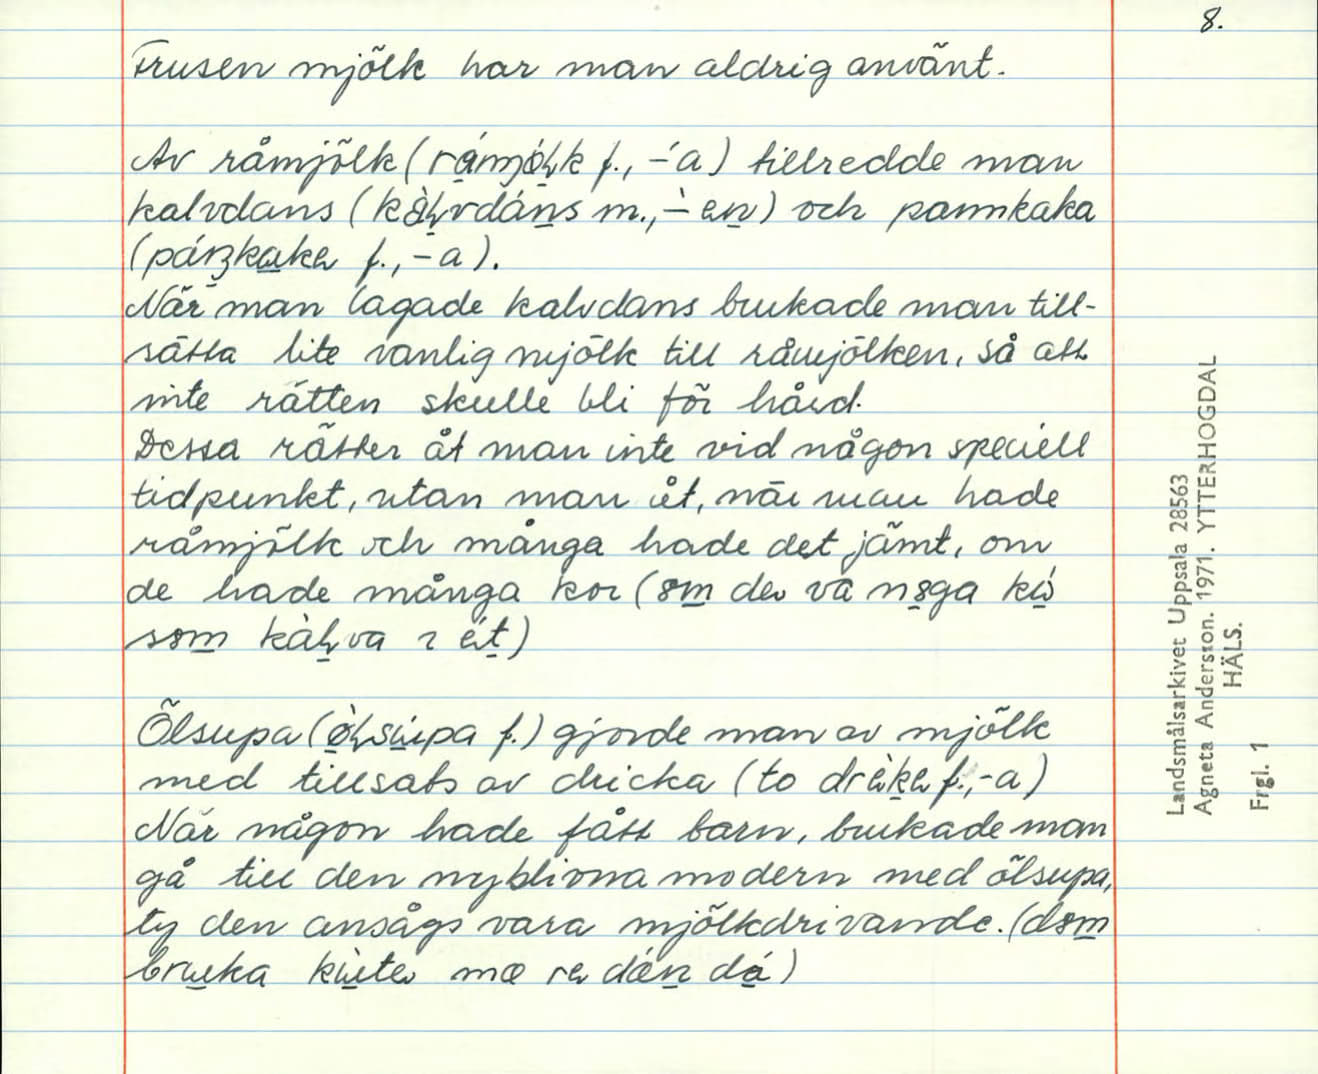 8.
Frusen mjölk har man aldrig använt.
Av råmjölk (råmjölk f., -́a) tillredde man
kalvdans (kàḷvdáns m., -̀en) och pannkaka
(pánkaka f., -a).
När man lagade kalvdans brukade man till-
sätta lite vanlig mjölk till råmjölken, så att
inte rätten skulle bli för hård.
Dessa rätter åt man inte vid någon speciell
tidpunkt, utan man åt, när man hade
råmjölk och många hade det jämt, om
de hade många kor (
som kàḷva ı éit)
Ölsupa (ø̀ḷsúpa f.) gjorde man av mjölk
med tillsats av dricka (to drèke f., -a)
När någon hade fått barn, brukade man
gå till den nyblivna modern med ölsupa,
ty den ansågs vara mjölkdrivande. (dom
bruka kùte mæ re dén dá)
Landsmålsarkivet Uppsala 28563
Agneta Andersson. 1971. YTTERHOGDAL
HÄLS.
Frgl. 1